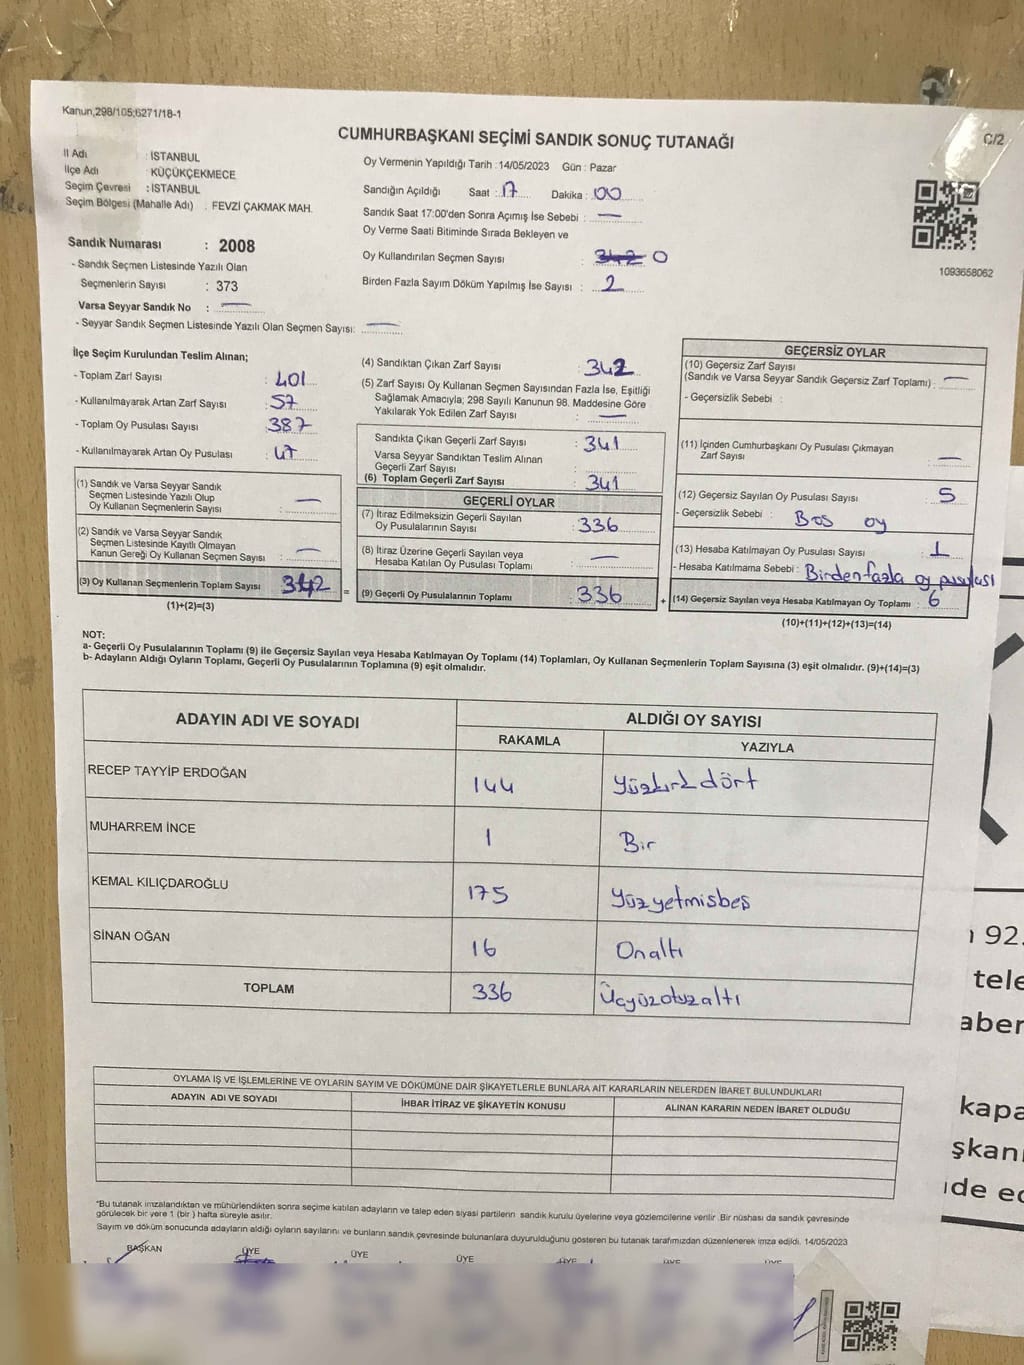 Kanun,298/105;6271/18-1
CUMHURBAŞKANI SEÇİMİ SANDIK SONUÇ TUTANAĞI
C/2
İl Adı : İSTANBUL
İlçe Adı : KÜÇÜKÇEKMECE
Seçim Çevresi : İSTANBUL
Seçim Bölgesi (Mahalle Adı) : FEVZİ ÇAKMAK MAH.
Sandık Numarası : 2008
- Sandık Seçmen Listesinde Yazılı Olan
Seçmenlerin Sayısı : 373
Varsa Seyyar Sandık No : —
- Seyyar Sandık Seçmen Listesinde Yazılı Olan Seçmen Sayısı: —
Oy Vermenin Yapıldığı Tarih :14/05/2023 Gün : Pazar
Sandığın Açıldığı Saat : 17 Dakika : 00
Sandık Saat 17:00'den Sonra Açımış İse Sebebi : —
Oy Verme Saati Bitiminde Sırada Bekleyen ve
Oy Kullandırılan Seçmen Sayısı : 342 0
Birden Fazla Sayım Döküm Yapılmış İse Sayısı : 2
1093658062
İlçe Seçim Kurulundan Teslim Alınan;
- Toplam Zarf Sayısı : 401
- Kullanılmayarak Artan Zarf Sayısı : 57
- Toplam Oy Pusulası Sayısı : 387
- Kullanılmayarak Artan Oy Pusulası : 47
(1) Sandık ve Varsa Seyyar Sandık
Seçmen Listesinde Yazılı Olup
Oy Kullanan Seçmenlerin Sayısı : —
(2) Sandık ve Varsa Seyyar Sandık
Seçmen Listesinde Kayıtlı Olmayan
Kanun Gereği Oy Kullanan Seçmen Sayısı : —
(3) Oy Kullanan Seçmenlerin Toplam Sayısı 342 =
(1)+(2)=(3)
(4) Sandıktan Çıkan Zarf Sayısı : 342
(5) Zarf Sayısı Oy Kullanan Seçmen Sayısından Fazla İse, Eşitliği
Sağlamak Amacıyla; 298 Sayılı Kanunun 98. Maddesine Göre
Yakılarak Yok Edilen Zarf Sayısı : —
Sandıkta Çıkan Geçerli Zarf Sayısı : 341
Varsa Seyyar Sandıktan Teslim Alınan
Geçerli Zarf Sayısı :
(6) Toplam Geçerli Zarf Sayısı : 341
GEÇERLİ OYLAR
(7) İtiraz Edilmeksizin Geçerli Sayılan
Oy Pusulalarının Sayısı : 336
(8) İtiraz Üzerine Geçerli Sayılan veya
Hesaba Katılan Oy Pusulası Toplamı : —
(9) Geçerli Oy Pusulalarının Toplamı : 336 +
GEÇERSİZ OYLAR
(10) Geçersiz Zarf Sayısı
(Sandık ve Varsa Seyyar Sandık Geçersiz Zarf Toplamı) : —
- Geçersizlik Sebebi :
(11) İçinden Cumhurbaşkanı Oy Pusulası Çıkmayan
Zarf Sayısı : —
(12) Geçersiz Sayılan Oy Pusulası Sayısı : 5
- Geçersizlik Sebebi : Bos oy
(13) Hesaba Katılmayan Oy Pusulası Sayısı : 1
- Hesaba Katılmama Sebebi : Birden fazla oy pusulası
(14) Geçersiz Sayılan veya Hesaba Katılmayan Oy Toplamı : 6
(10)+(11)+(12)+(13)=(14)
NOT:
a- Geçerli Oy Pusulasının Toplamı (9) ile Geçersiz Sayılan veya Hesaba Katılmayan Oy Toplamı (14) Toplamları, Oy Kullanan Seçmenlerin Toplam Sayısına (3) eşit olmalıdır. (9)+(14)=(3)
b- Adayların Aldığı Oyların Toplamı, Geçerli Oy Pusulalarının Toplamına (9) eşit olmalıdır.
ADAYIN ADI VE SOYADI ALDIĞI OY SAYISI
RAKAMLA YAZIYLA
RECEP TAYYİP ERDOĞAN 144 Yüzkırk dört
MUHARREM İNCE 1 Bir
KEMAL KILIÇDAROĞLU 175 Yüzyetmisbeş
SİNAN OĞAN 16 Onaltı
TOPLAM 336 Üçyüzotuzaltı
OYLAMA İŞ VE İŞLEMLERİNE VE OYLARIN SAYIM VE DÖKÜMÜNE DAİR ŞİKAYETLERLE BUNLARA AİT KARARLARIN NELERDEN İBARET BULUNDUKLARI
ADAYIN ADI VE SOYADI İHBAR İTİRAZ VE ŞİKAYETİN KONUSU ALINAN KARARIN NEDEN İBARET OLDUĞU
*Bu tutanak imzalandıktan ve mühürlendikten sonra seçime katılan adayların ve talep eden siyasi partilerin sandık kurulu üyelerine veya gözlemcilerine verilir .Bir nüshası da sandık çevresinde
görülecek bir yere 1 (bir ) hafta süreyle asılır.
Sayım ve döküm sonucunda adayların aldığı oyların sayılarını ve bunların sandık çevresinde bulunanlara duyurulduğunu gösteren bu tutanak tarafımızdan düzenlenerek imza edildi. 14/05/2023
BAŞKAN ÜYE ÜYE ÜYE ÜYE ÜYE ÜYE
92.
tele
aber
kapa
şkanı
ide ed